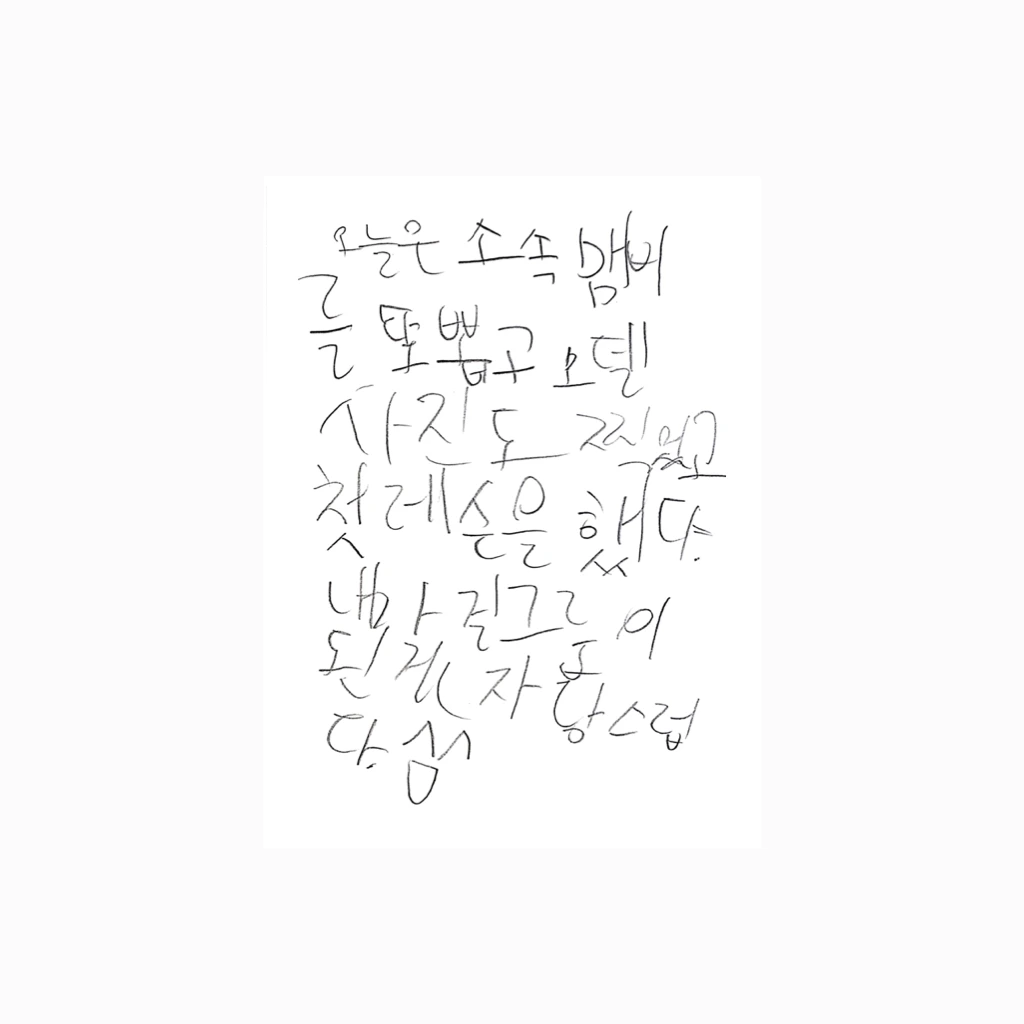 오늘은 소속 맴버
를 또 뽑고 모델
사진도 찍었고
첫 레슨을 했다.
내가 걸그룹이
된 게 자랑스럽
다.